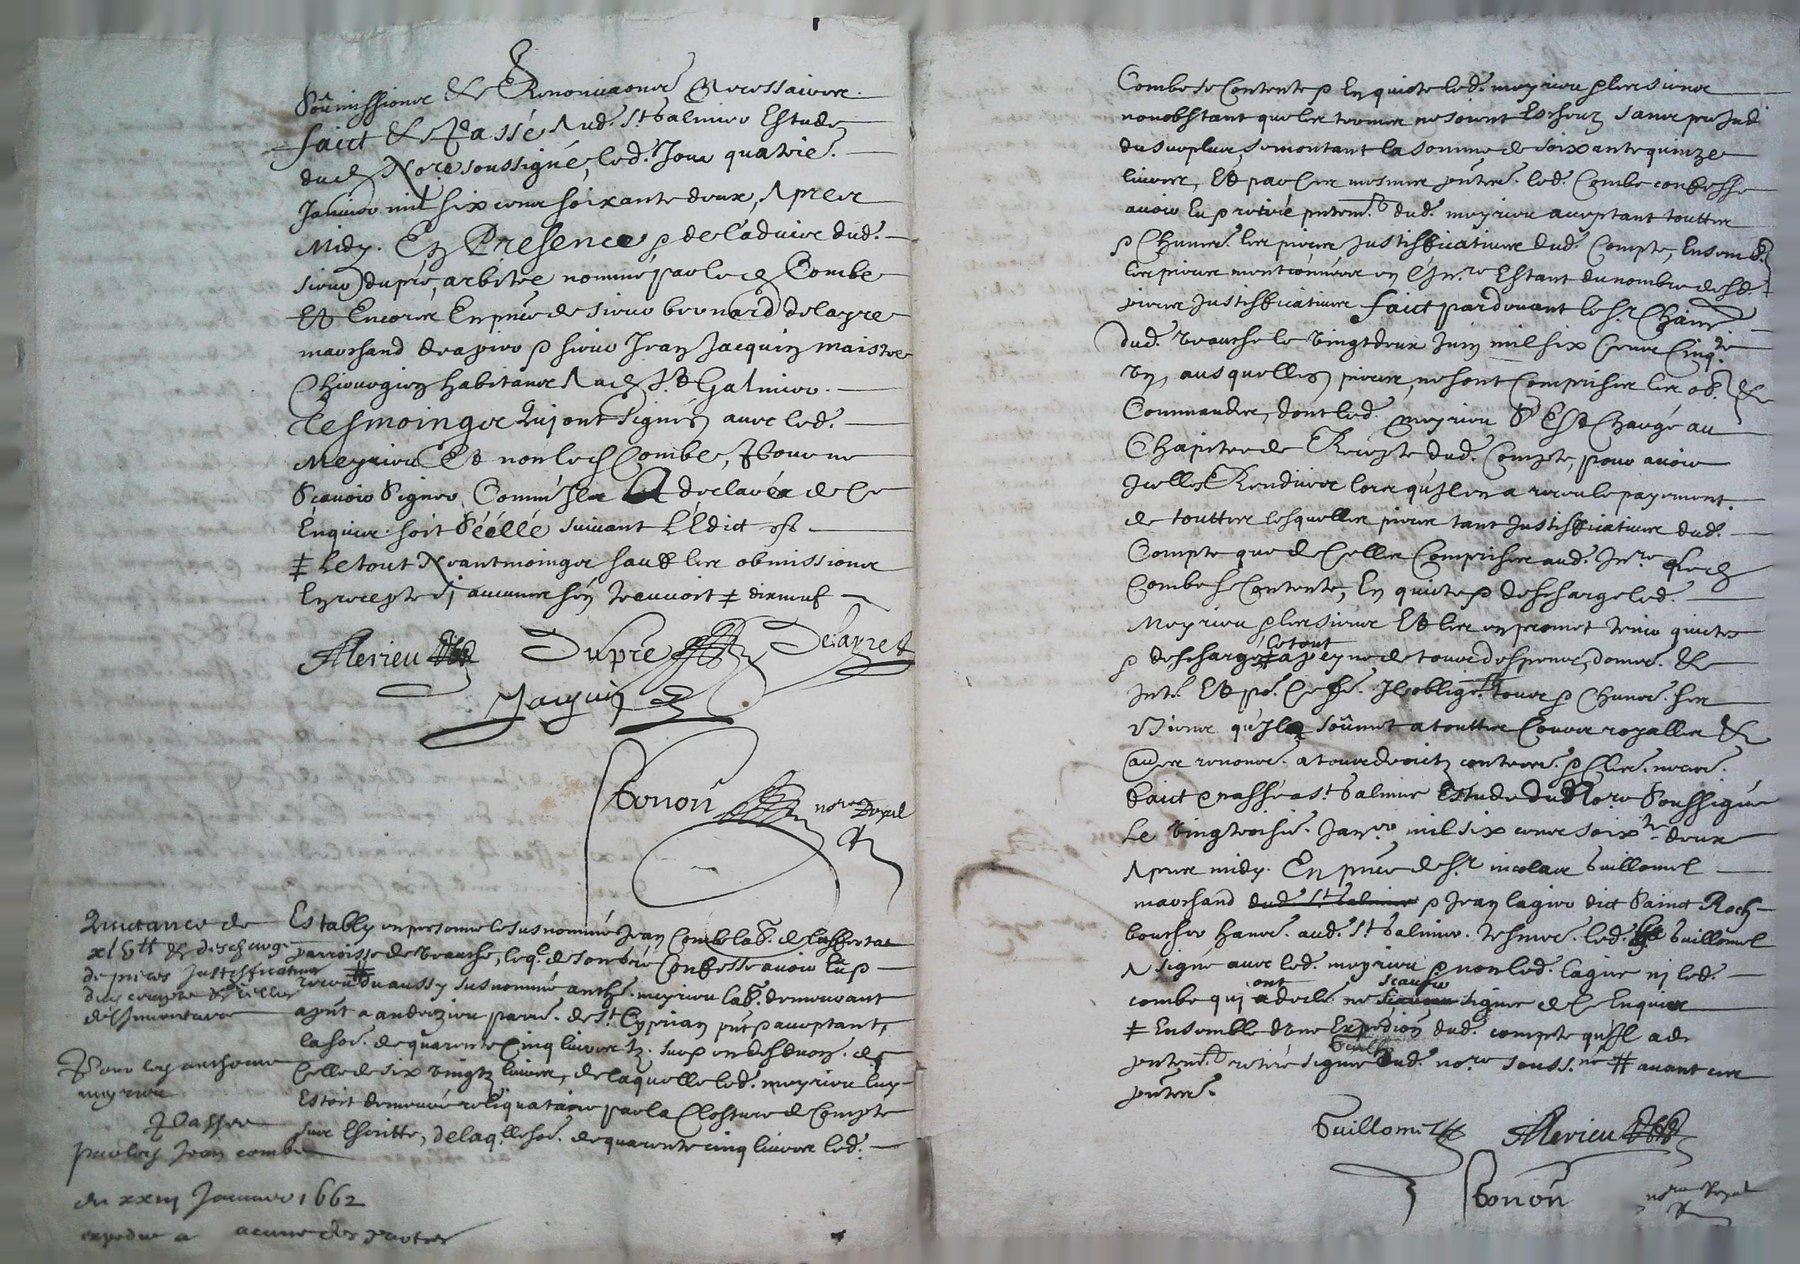 Soûmissiones & Renonciaones Necessaires
faict & Passé Aud. St Galmier Estude
dud Nore soussigné, led. Jour quatrie.
Janvier mil six cens soixante deux, Apres
Midy. En Presence & de l'advice dud.
sieur dupré, arbitre nommé par led Combe
Et Encores En pnce de sieur bernard delayre
marchand drapier & sieur Jean Jacquin maistre
Chirurgien habitans Aud St Galmier.
Tesmoings Qui ont signés avec led.
Meyrieu Et non led Combe, Pour ne
Sçavoir Signer Comme Il A declaré de Ce
Enquis. soit Séellé suivant L'Edict
‡ Le tout Neantmoings sauf les obmissions
Erreurs si aucunes sen treuvoit ‡ dixneuf
Merieu Dupre Delayre
Jacquin
Bonon nore Royal
Quictance de
xlv tt & descharge
de pieces justificatives
du compte & celles
de l'inventaire
Pour Anthoine
meyrieu
Passée
par Jean combe
du xxiii Janvier 1662
expedié a aucune des parties
Estably en personne le susnommé Jean Combe lab. de
parroisse de Veauche, leql. de son gré Confesse avoir
receu du aussy susnommé anthe. meyrieu lab. demeurant
a andrezieu parre. de St Cyprian pnt & acceptant,
la soe. de quarente Cinq livres tz. sur & en deduon. de
Celle de six vingtz livres, de laquelle led. meyrieu luy
Estoit demeuré reliquataire par la Closture de Compte
sus Escritte, de laqlle soe. de quarente cinq livres led.
Combe se Contente & En quicte led. meyrieu & les siens
nonobstant que les termes ne soient Escheuz sans prejud
du surplus, se montant la somme de soixante quinze
livres, Et par ces mesmes pntes. led. Combe confesse
avoir Eu & retiré pntemt dud. meyrieu acceptant touttes
& Chunes. les pieces Justifficatives dud Compte, Ensemb.
les pieces mentionnées en l'Inre Estant du nombre desd.
pieces Justifficatives faict pardevant le sr Chain
dud. Veauche le Vingt deux Juin mil six Cens Cinqte
Un, ausquelles pieces, ne sont Comprises les ob. &
Commandes, dont led. meyrieu S'Est Chargé au
Chapitre de Recepte dud. Compte, pour avoir
Icelles Rendues lors qu'Il en a receu le payement.
de touttes lesquelles pieces tant Justifficatives dud.
Compte que de Celles Comprises aud. Inre led
Combe se Contente, En quicte & descharge led.
Meyrieu & les siens Et les en promet tenir quictes
& deschargés le tout a peyne de tous despens, domes. &
Intz. Et po. Ce fe. Il oblige tous & Chuns. ses
Biens qu'Il soûmet a touttes Cours royalles &
aues renonce. a tous droictz contres. & Cles. neces.
Faict & passé a St Galmier Estude dud Nore Soussigné
Le Vingtroisie. Janver mil six cens soixte deux
Apres midy. En pnce de sr nicolas Guillomel
marchand dud St Galmier & Jean lagier dict Sainct Roch
boucher hans. aud. St Galmier. tesmos. led. Guillomel
A signé avec led. meyrieu & non led. lagier ni led.
combe qui ont declé. ne scavoir signer de Ce Enquis
‡ Ensemble d'une Expedion dud. compte qu'Il a de
pntemt retiré signé dud. nore souss.né ‡ avant ces
pntes.
Guillomel Merieu
Bonon nore Royal